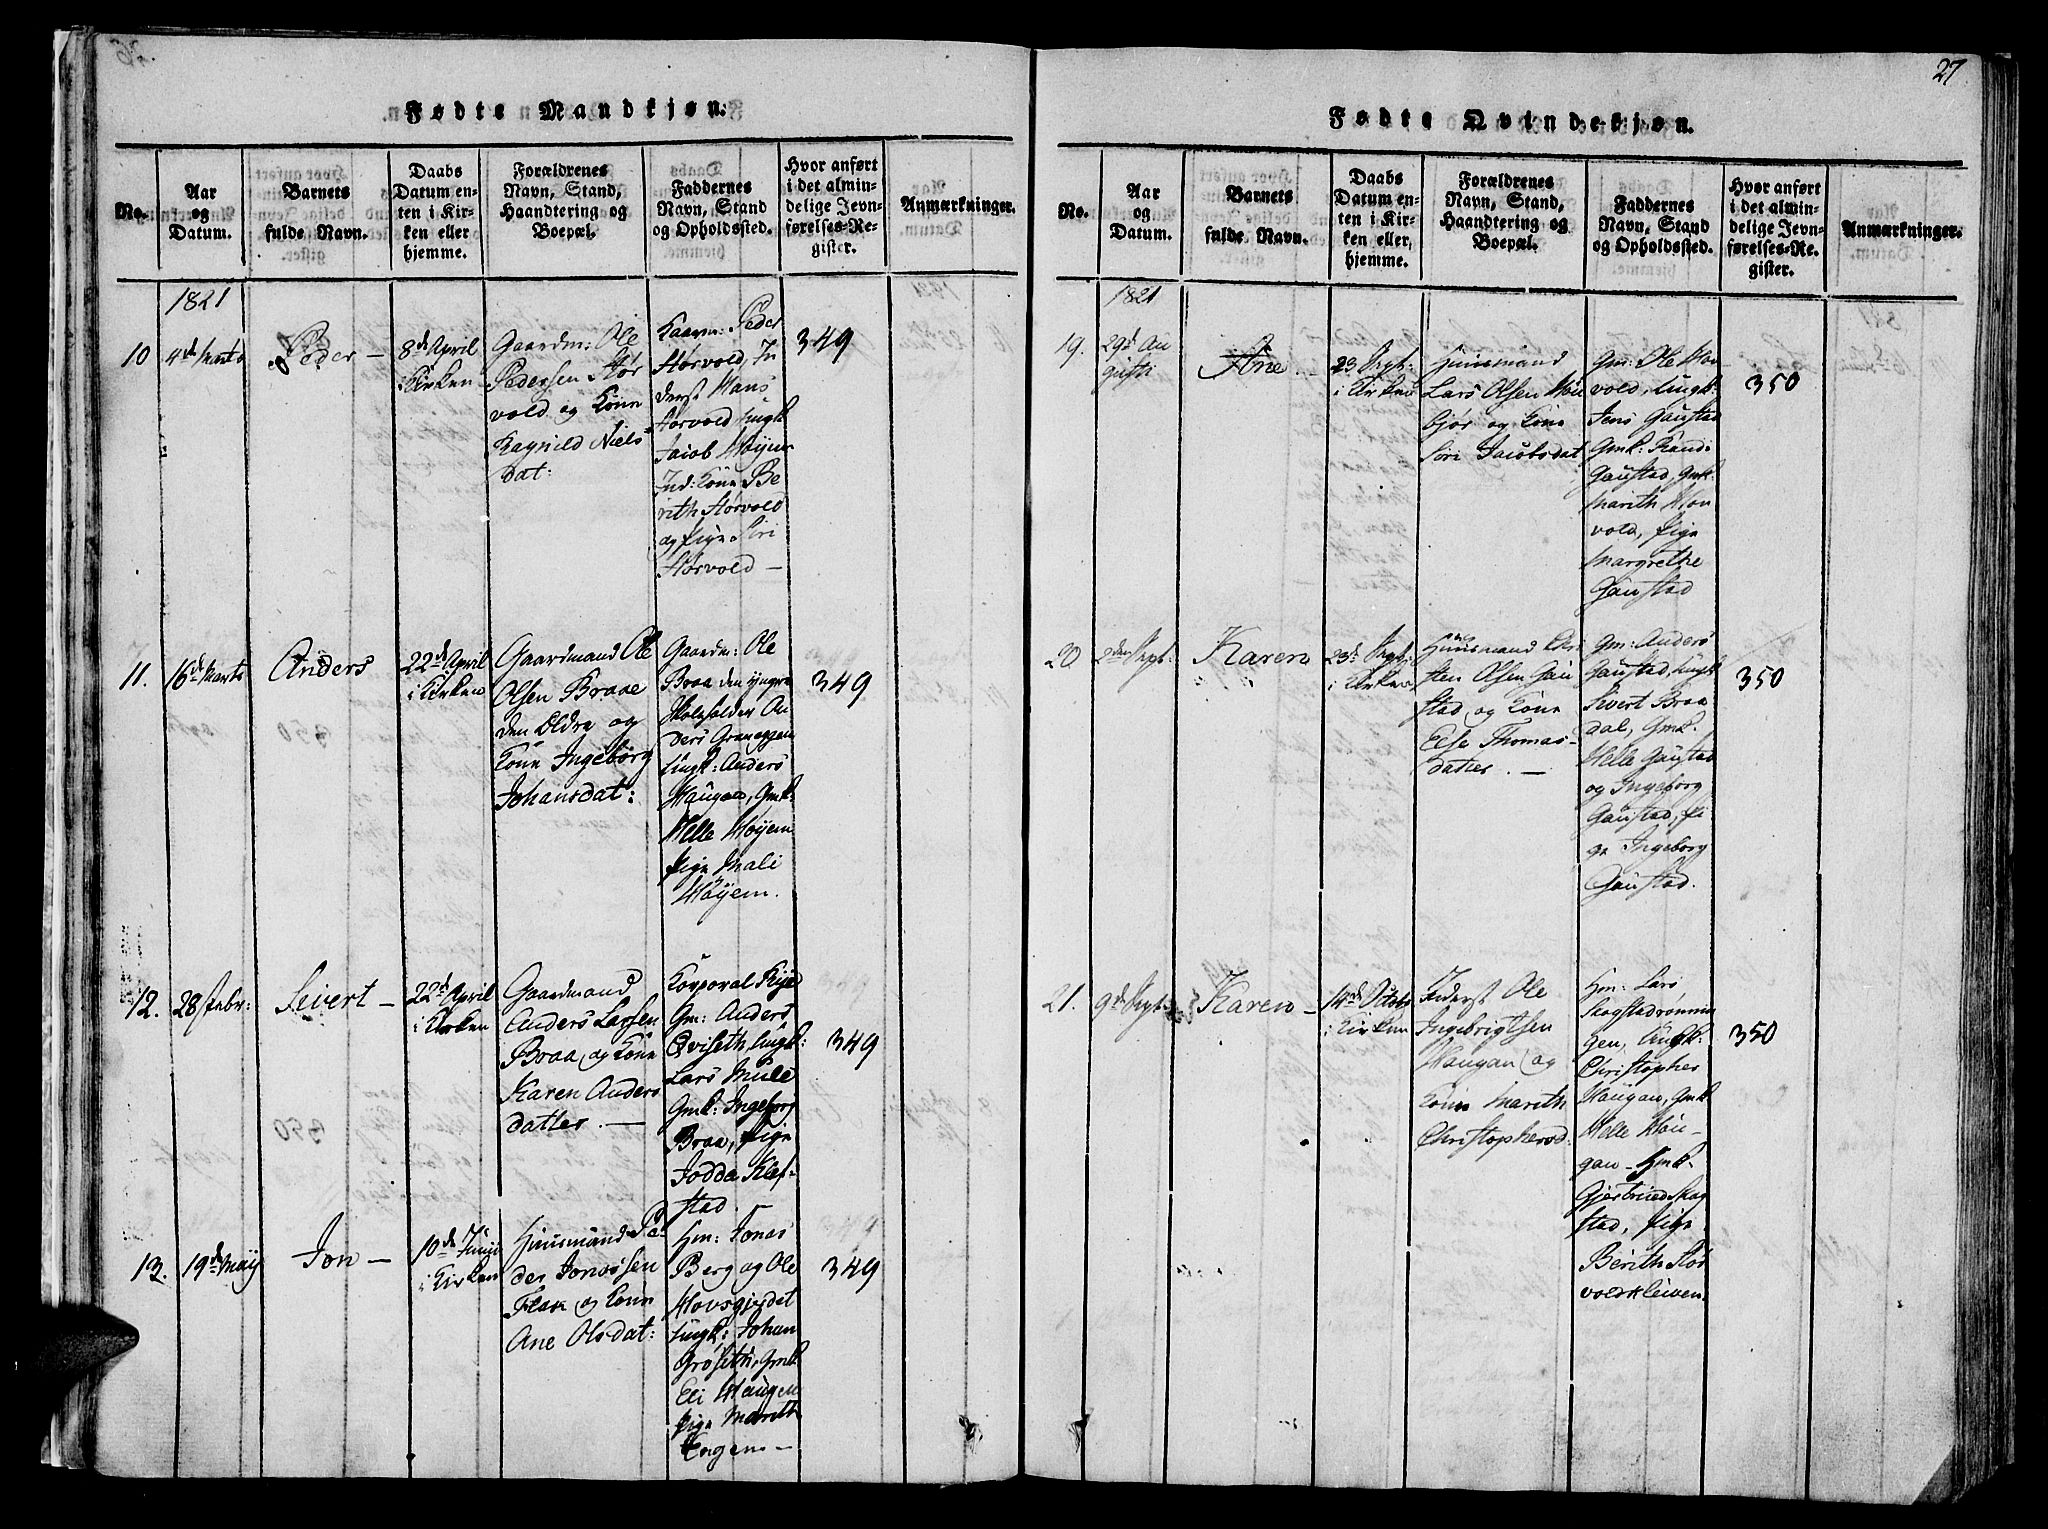 27
Fødte Mandkjøn.
No.
Aar
og
Datum.
Barnets
fulde Navn.
Daabs
Datum en-
ten i Kir-
ken eller
hjemme.
Forældrenes
Navn, Stand,
Haandtering og
Boepæl.
Faddernes
Navn, Stand
og Opholdssted.
Hvor anført
i det almin-
delige Jevn-
førelses-Re-
gister.
Anmærkninger.
1821
10
4de Marts
Peder —
8de April
i Kirken
Gaardm: Ole
Pedersen Stør
vold og Kone
Ragnild Niels
dat:
Kaarm: Peder
Størvold, In
derst Hans
Størvold, Ungk
Jacob Høyem
Ind: Kone Be
rith Størvold
og Pige Siri
Størvold —
349
11.
16de Marts
Anders
22de April
i Kirken
Gaardmand Ole
Olsen Braae
den Eldre og
Kone Ingeborg
Johansdat:
Gaardm: Ole
Braa den yngre
Skoleholder An
ders Graneggen
Ungk: Anders
Haugan, Gmk:
Helle Høyem
Pige Mali
Høyem.
349
12.
28 Febr:
Sivert —
22de April
i Kirken
Gaardmand
Anders Larsen
Braa, og Kone
Karen Anders
datter. —
Korporal Kye
Gm: Anders
Qviseth, Ungk:
Lars Mule
Gmk: Ingeborg
Braa, Pige
Jodda Klef-
stad. —
349
13.
19de May
Jon —
10de Junii
i Kirken
Huusmand Pe
der Jonsøsen
Flak og Kone
Ane Olsdat:
Hm: Jonas
Berg og Ole
Hovsgjerdet
Ungk: Johan
Grøseth, Gmk
Eli Haugen
Pige Marith
Engen —
349
Fødte Qvindekjøn.
No.
Aar
og
Datum.
Barnets
fulde Navn.
Daabs
Datum en-
ten i Kir-
ken eller,
hjemme.
Forældrenes
Navn, Stand,
Haandtering og
Boepæl.
Faddernes
Navn, Stand
og Opholdssted.
Hvor anført
i det almin-
delige Jevn-
førelses-Re-
gister.
Anmærkninger.
1821
19.
29de Au
gusti
Ane —
23 Sept:
i Kirken
Huusmand
Lars Olsen
og Kone
Siri Jacobsdat
Gm: Ole Hou
vold, Ungk:
Jens Gaustad
Gmk: Randi
Gaustad, Gmk:
Marith Hou
vold, Pige
Margrethe
Gaustad
350
20
2den Sept:
Karen
23de Sept:
i Kirken
Huusmand
Olsen Gau
stad og Kone
Else Thomas-
datter. —
Gm: Anders
Gaustad, Ungk
Sivert Braa
dal, Gmk.
Helle Gaustad
og Ingeborg
Gaustad, Pi-
ge Ingeborg
Gaustad.
350
21.
9de Sept:
Karen —
14de Octobr
i Kirken
Inderst Ole
Ingebrigtsen
Haugan og
Kone Marith
Christophersd:
Hm: Lars
Skogstadrømmin
gen, Ungk:
Christopher
Haugan, Gmk
Helle Hau-
gan — Hmk.
Gjertrued Skog
stad, Pige
Berith Stør
voldkleiven.
350